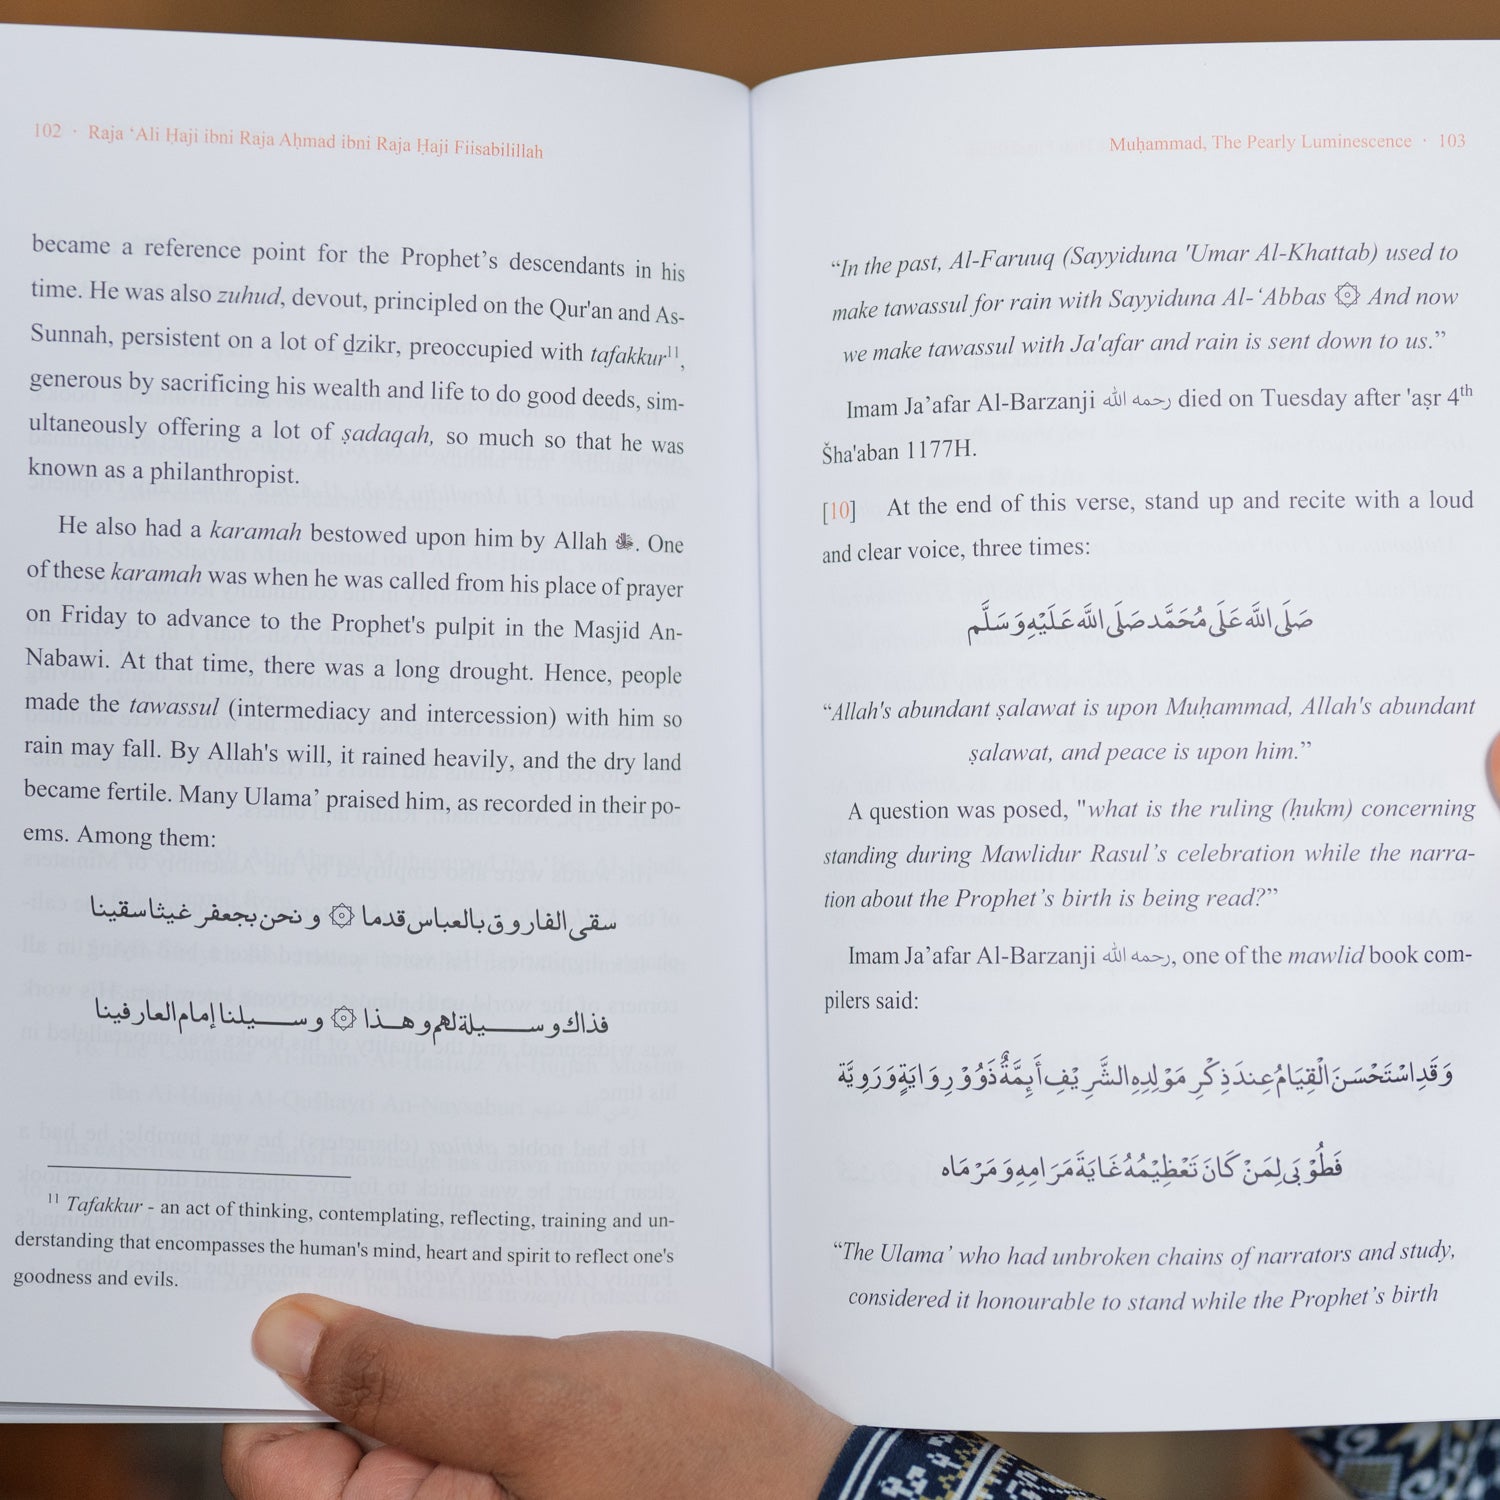 102 · Raja ‘Ali Ḥaji ibni Raja Aḥmad ibni Raja Ḥaji Fiisabilillah
became a reference point for the Prophet’s descendants in his
time. He was also zuhud, devout, principled on the Qur'an and As-
Sunnah, persistent on a lot of ḏzikr, preoccupied with tafakkur¹¹,
generous by sacrificing his wealth and life to do good deeds, sim-
ultaneously offering a lot of ṣadaqah, so much so that he was
known as a philanthropist.
He also had a karamah bestowed upon him by Allah ﷻ. One
of these karamah was when he was called from his place of prayer
on Friday to advance to the Prophet's pulpit in the Masjid An-
Nabawi. At that time, there was a long drought. Hence, people
made the tawassul (intermediacy and intercession) with him so
rain may fall. By Allah's will, it rained heavily, and the dry land
became fertile. Many Ulama’ praised him, as recorded in their po-
ems. Among them:
سقى الفاروق بالعباس قدما ۞ ونحن بجعفر غيثا سقينا
فذاك وســـــيلة لهم وهـــذا ۞ وســـــيلنا إمام العارفينا
¹¹ Tafakkur - an act of thinking, contemplating, reflecting, training and un-
derstanding that encompasses the human's mind, heart and spirit to reflect one's
goodness and evils.
Muḥammad, The Pearly Luminescence · 103
“In the past, Al-Faruuq (Sayyiduna 'Umar Al-Khattab) used to
make tawassul for rain with Sayyiduna Al-‘Abbas ۞ And now
we make tawassul with Ja'afar and rain is sent down to us.”
Imam Ja’afar Al-Barzanji رحمه الله died on Tuesday after 'aṣr 4th
Šha'aban 1177H.
[10] At the end of this verse, stand up and recite with a loud
and clear voice, three times:
صَلَّى اللَّهُ عَلَى مُحَمَّد صَلَّى اللَّهُ عَلَيْهِ وَسَلَّم
“Allah's abundant ṣalawat is upon Muḥammad, Allah's abundant
ṣalawat, and peace is upon him.”
A question was posed, "what is the ruling (ḥukm) concerning
standing during Mawlidur Rasul’s celebration while the narra-
tion about the Prophet’s birth is being read?”
Imam Ja’afar Al-Barzanji رحمه الله, one of the mawlid book com-
pilers said:
وَقَدِ اسْتَحْسَنَ الْقِيَامُ عِنْدَ ذِكْرِ مَوْلِدِهِ الشَّرِيْفِ أَئِمَّةٌ ذَوُوْ رِوَايَةٍ وَرَوِيَّة
فَطُوْبَى لِمَنْ كَانَ تَعْظِيْمُهُ غَايَةَ مَرَامِهِ وَمَرْمَاه
“The Ulama’ who had unbroken chains of narrators and study,
considered it honourable to stand while the Prophet’s birth